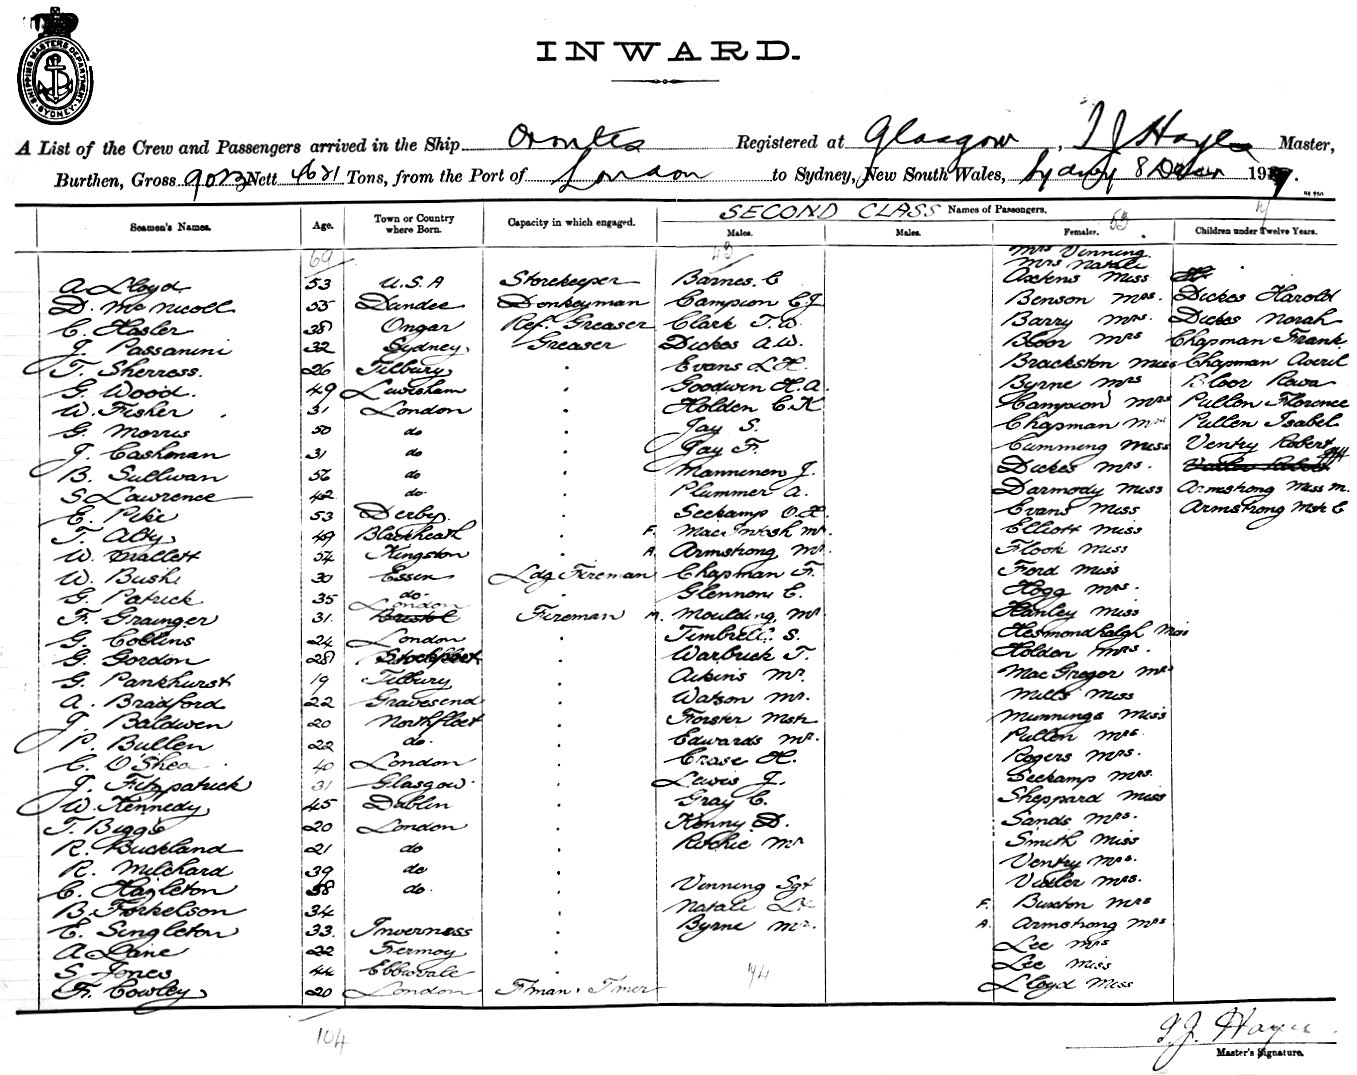 SHIPPING MASTERS DEPARTMENT
SYDNEY
INWARD.
A List of the Crew and Passengers arrived in the Ship Orontes Registered at Glasgow, J J Hayes Master,
Burthen, Gross 9023 Nett 4621 Tons, from the Port of London to Sydney, New South Wales, Sydney 8 19
SECOND CLASS Names of Passengers.
Seamen's Names. Age. Town or Country where Born. Capacity in which engaged. Males. Males. Females. 53 Children under Twelve Years.
69 43 Mrs Venning
Mrs Natali
A Lloyd 53 U.S.A Storekeeper Barnes. C Axtens Miss
D. McNicoll 55 Dundee Donkeyman Campion C J Benson Mrs. Dickes Harold
C. Hasler 38 Ongar Ref. Greaser Clark T. W. Barry Mrs. Dickes Norah
J. Passanini 32 Sydney Greaser Dickes A. W. Bloor Mrs Chapman Frank
T. Sherress. 26 Tilbury . Evans L H. Brackston Miss Chapman Averil
G. Wood. 49 Lewisham . Goodwin H. A. Byrne Mrs Bloor Rowa
W. Fisher . 31 London . Holden C. K Campion Mrs Pullen Florence
G. Morris 50 do . Jay S. Chapman Mrs Pullen Isabel
J. Cashman 31 do . Jay F. Cumming Miss Ventry Robert
B. Sullivan 56 do . Manninen J. Dickes Mrs.
S. Lawrence 42 do . Plummer A. Darmody Miss Armstrong Miss M.
E. Pike 53 Derby . Seekamp O. H. Evans Miss Armstrong Mstr C
T. Alty 49 Blackheath . F. MacIntosh Mr. Elliott Miss
W. Mallett 54 Kingston . A. Armstrong Mr. Flook Miss
W. Bush 30 Essex Ldg Fireman Chapman F. Ford Miss
G. Patrick 35 do. . Glennon C. Hogg Mrs.
F. Grainger 31. London Bristol Fireman M. Moulding, Mr Hanley Miss
G. Collins 24 London . Timbrell. S. Hesmondhalgh Miss
G. Gordon 28 . Warbrick T. Holden Mrs.
G. Pankhurst 19 Tilbury . Aikins Mr. MacGregor Mrs
A. Bradford 22 Gravesend . Watson Mr. Mills Miss
J. Baldwin 20 Northfleet . Forster Mstr Munnings Miss
P. Bullen 22 do. . Edwards Mr. Pullen Mrs.
C. O'Shea 40 London . Crase H. Rogers Mrs.
J. Fitzpatrick 31 Glasgow . Lewis J. Seekamp Mrs.
W. Kennedy 45 Dublin . Gray C. Sheppard Miss
T. Biggs 20 London . Kenny D. Sands Mrs.
R. Buckland 21 do . Ritchie Mr Smith Miss
R. Milchard 39 do . Ventry Mrs.
C. Hazleton 58 do. . Venning Sgt Vialer Mrs.
B. Torkelson 34 . Natali Lt F. Buxton Mrs
E. Singleton 33. Inverness . Byrne Mr. A. Armstrong Mrs
A Laine 22 Fermoy . Lee Mrs
S. Jones 44 Ebbwvale . 74 Lee Miss
F. Cowley 20 London F'man. T'mer Lloyd Miss
104
J. J. Hayes
Master's Signature.